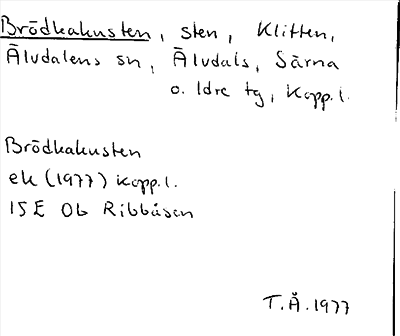 Brödkakusten, sten, Klitten,
Älvdalens sn, Älvdals, Särna
o. Idre tg, Kopp.l.
Brödkakusten
ek (1977) Kopp.l.
15E 0b Ribbåsen
T.Å. 1977